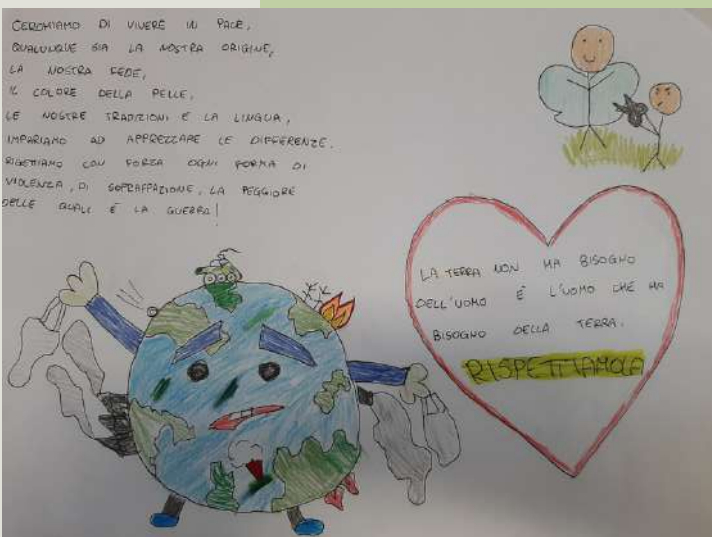 CERCHIAMO DI VIVERE IN PACE,
QUALUNQUE SIA LA NOSTRA ORIGINE,
LA NOSTRA FEDE,
IL COLORE DELLA PELLE,
LE NOSTRE TRADIZIONI E LA LINGUA,
IMPARIAMO AD APPREZZARE LE DIFFERENZE.
RIGETTIAMO CON FORZA OGNI FORMA DI
VIOLENZA, DI SOPRAFFAZIONE, LA PEGGIORE
DELLE QUALI È LA GUERRA!
LA TERRA NON HA BISOGNO
DELL'UOMO È L'UOMO CHE HA
BISOGNO DELLA TERRA.
RISPETTIAMOLA